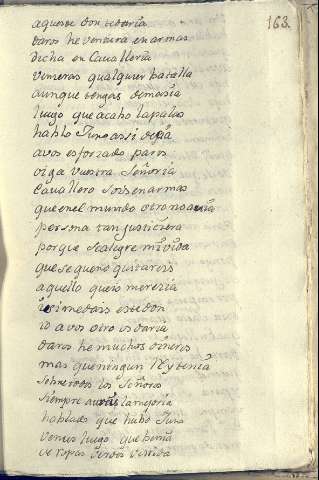 163.
aquese don te daria
daros he ventura en armas
dicha en Cavalleria
venceras qualquier batalla
aunque tengas demasia
luego que acabo Palas
hablo Juno assi decia
a vos esforzado paris
oiga vuestra Señoria
Cavallero sois en armas
que en el mundo otro no avia
persona tan justiciera
porque se alegre mi vida
que se que no quitareis
aquello que io merezia
si me dais ese don
io a vos otro os daria
daros he muchos dineros
mas que ningun Rey tenia
sobre todos los Señores
siempre la mejoria
hablado que hubo Juno
Venus luego que benia
de ropas verdes vestida